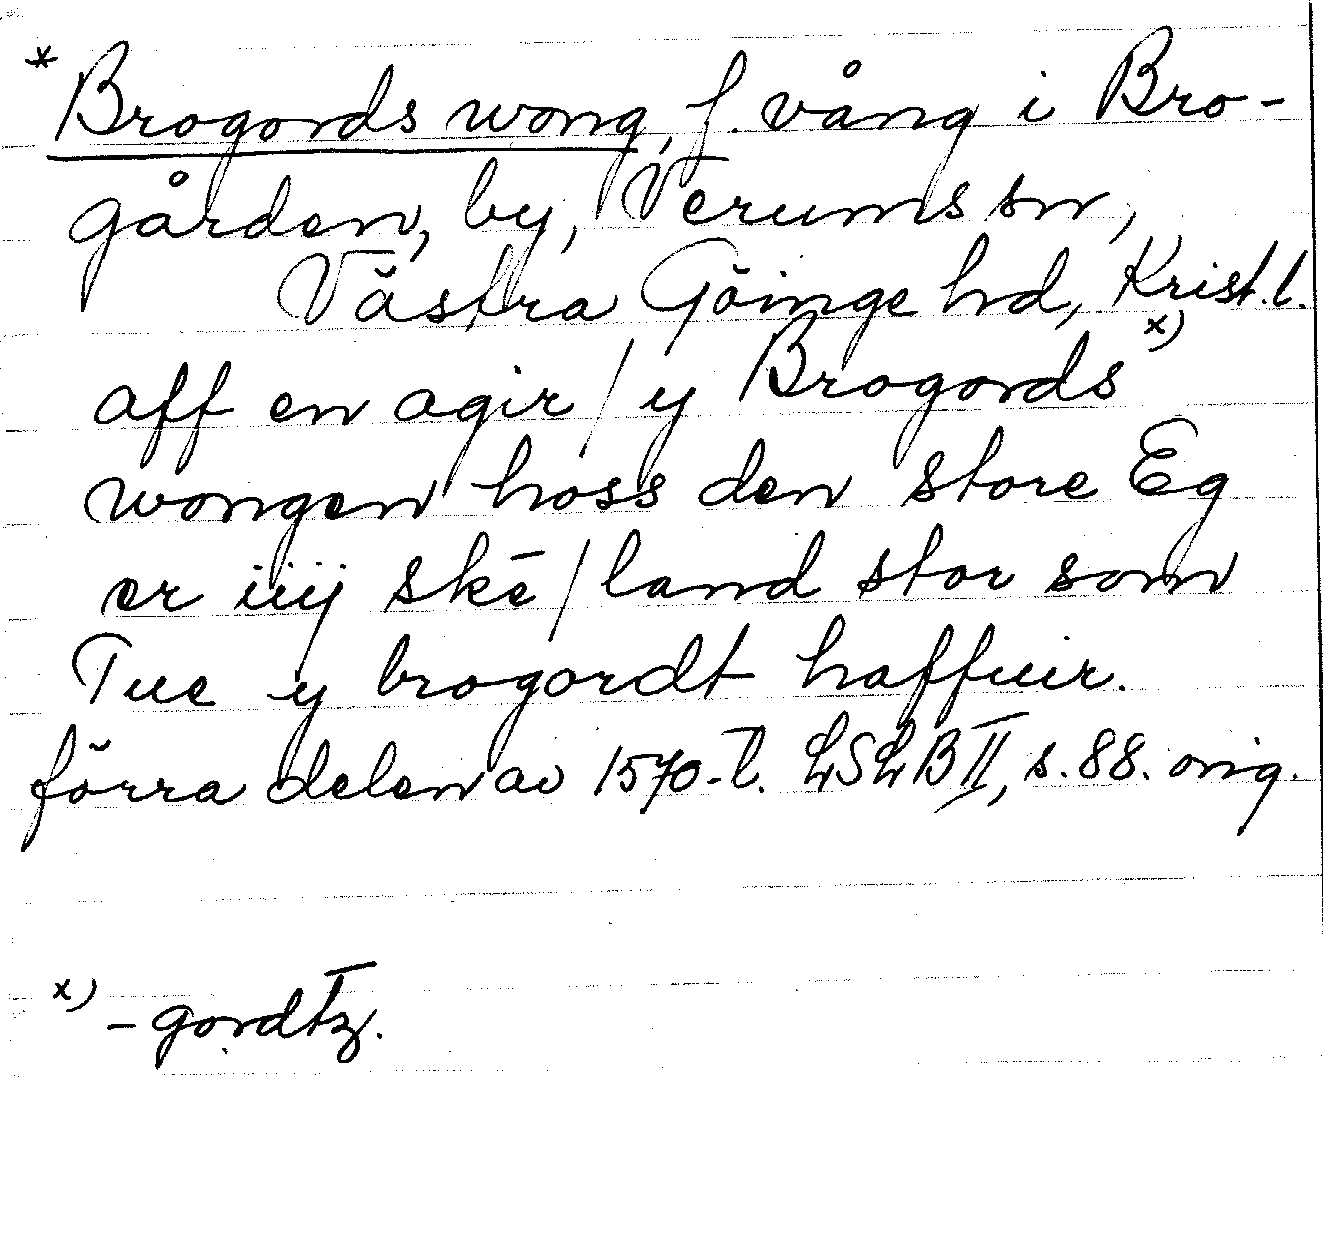 * Brogords wong, f. vång i Bro-
gården, by, Verums sn,
Västra Göinge hd, Krist. l.
aff en agir / y Brogords x)
wongen hoss den store Eg
er iiij skē / land stor som
Tue y brogordt haffuir.
förra delen av 1570-t. LSLB II, s. 88. orig.
x) - gordtz.